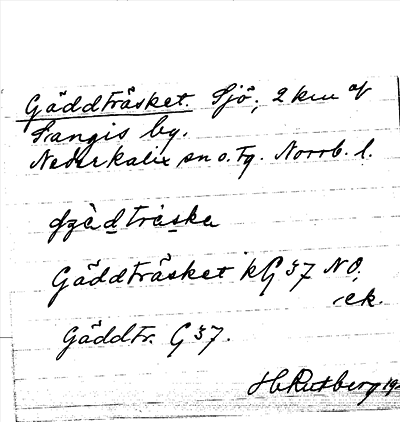 Gäddträsket. Sjö, 2 km af
Sangis by.
Nederkalix sn o. tg. Norrb. l.
gzèdtrèska
Gäddträsket kG 37 NO.
ek.
Gäddtr. G 37.
H Rutberg 19